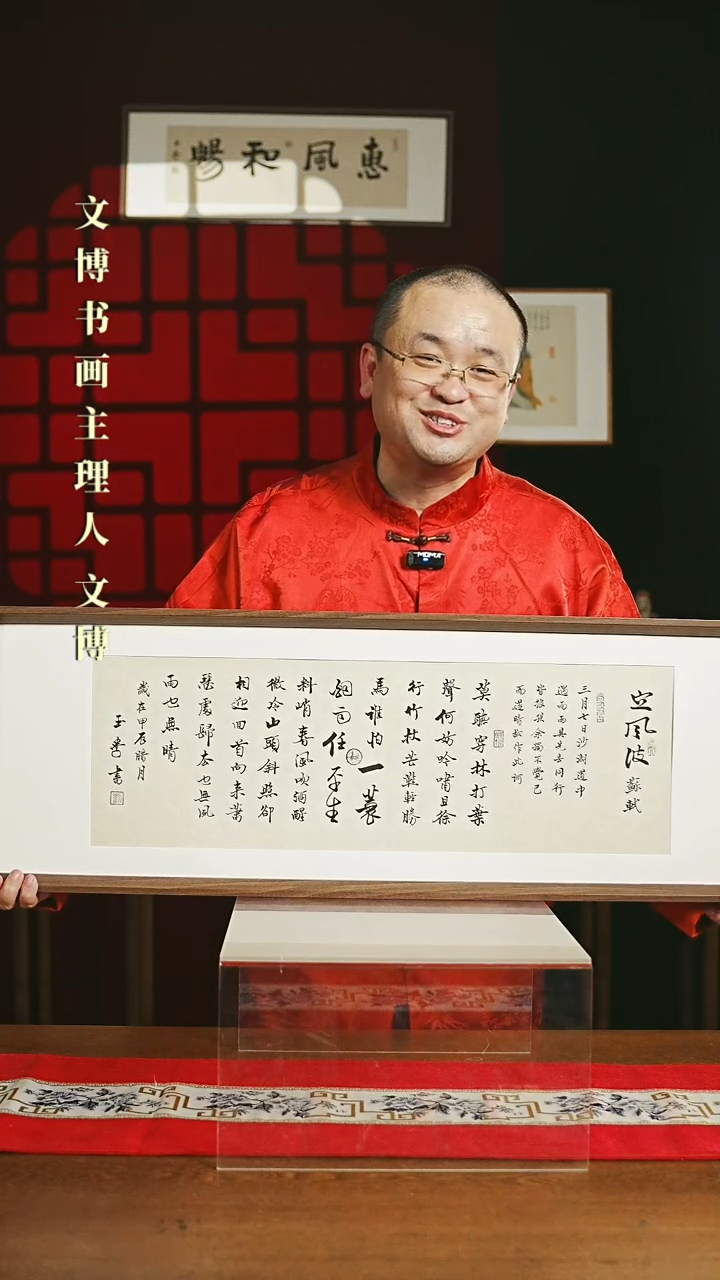 惠風和暢
文博书画主理人 文博
定風波 蘇軾
三月七日沙湖道中
遇雨雨具先去同行
皆狼狽余獨不覺已
而遂晴故作此词
莫聽穿林打葉
聲何妨吟嘯且徐
行竹杖芒鞋輕勝
馬誰怕一蓑
烟雨任平生
料峭春風吹酒醒
微冷山頭斜照卻
相迎回首向来蕭
瑟處歸去也無風
雨也無晴
歲在甲辰腊月